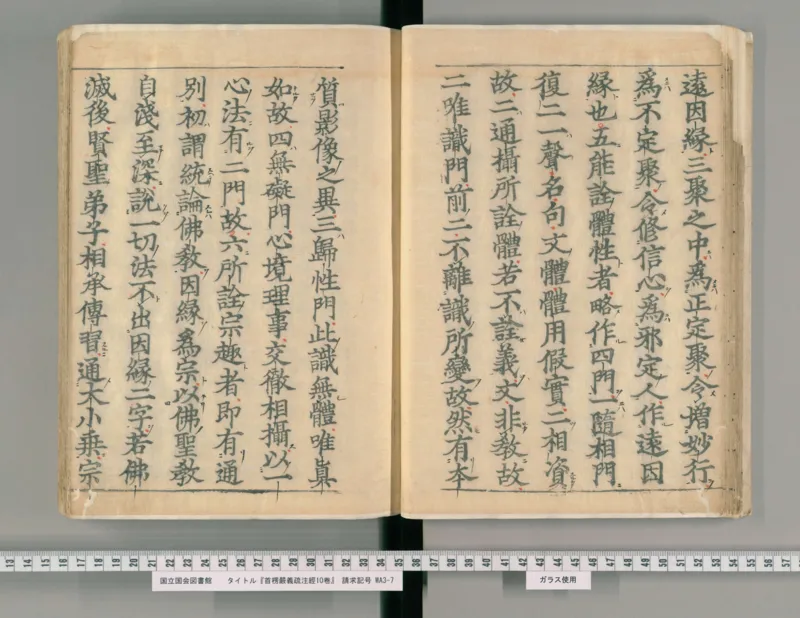 遠因緣三聚之中為正定聚令增妙行
為不定聚令修信心為邪定人作遠因
緣也五能詮體性者略作四門一隨相門
復二一聲名句文體體用假實二相資
故二通攝所詮體若不詮義文非教故
二唯識門前二不離識所變故然有本
質影像之異三歸性門此識無體唯真
如故四無礙門心境理事交徹相攝以一
心法有二門故六所詮宗趣者即有通
別初謂統論佛教因緣為宗以佛聖教
自淺至深說一切法不出因緣二字若佛
滅後賢聖弟子相承傳習通大小乘宗
13 14 15 16 17 18 19 20 21 22 23 24 25 26 27 28 29 30 31 32 33 34 35 36 37 38 39 40 41 42 43 44 45 46 47 48 49 50 51 52 53 54 55 56 57
国立国会図書館 タイトル『首楞嚴義疏注經10巻』 請求記号 WA3-7
ガラス使用